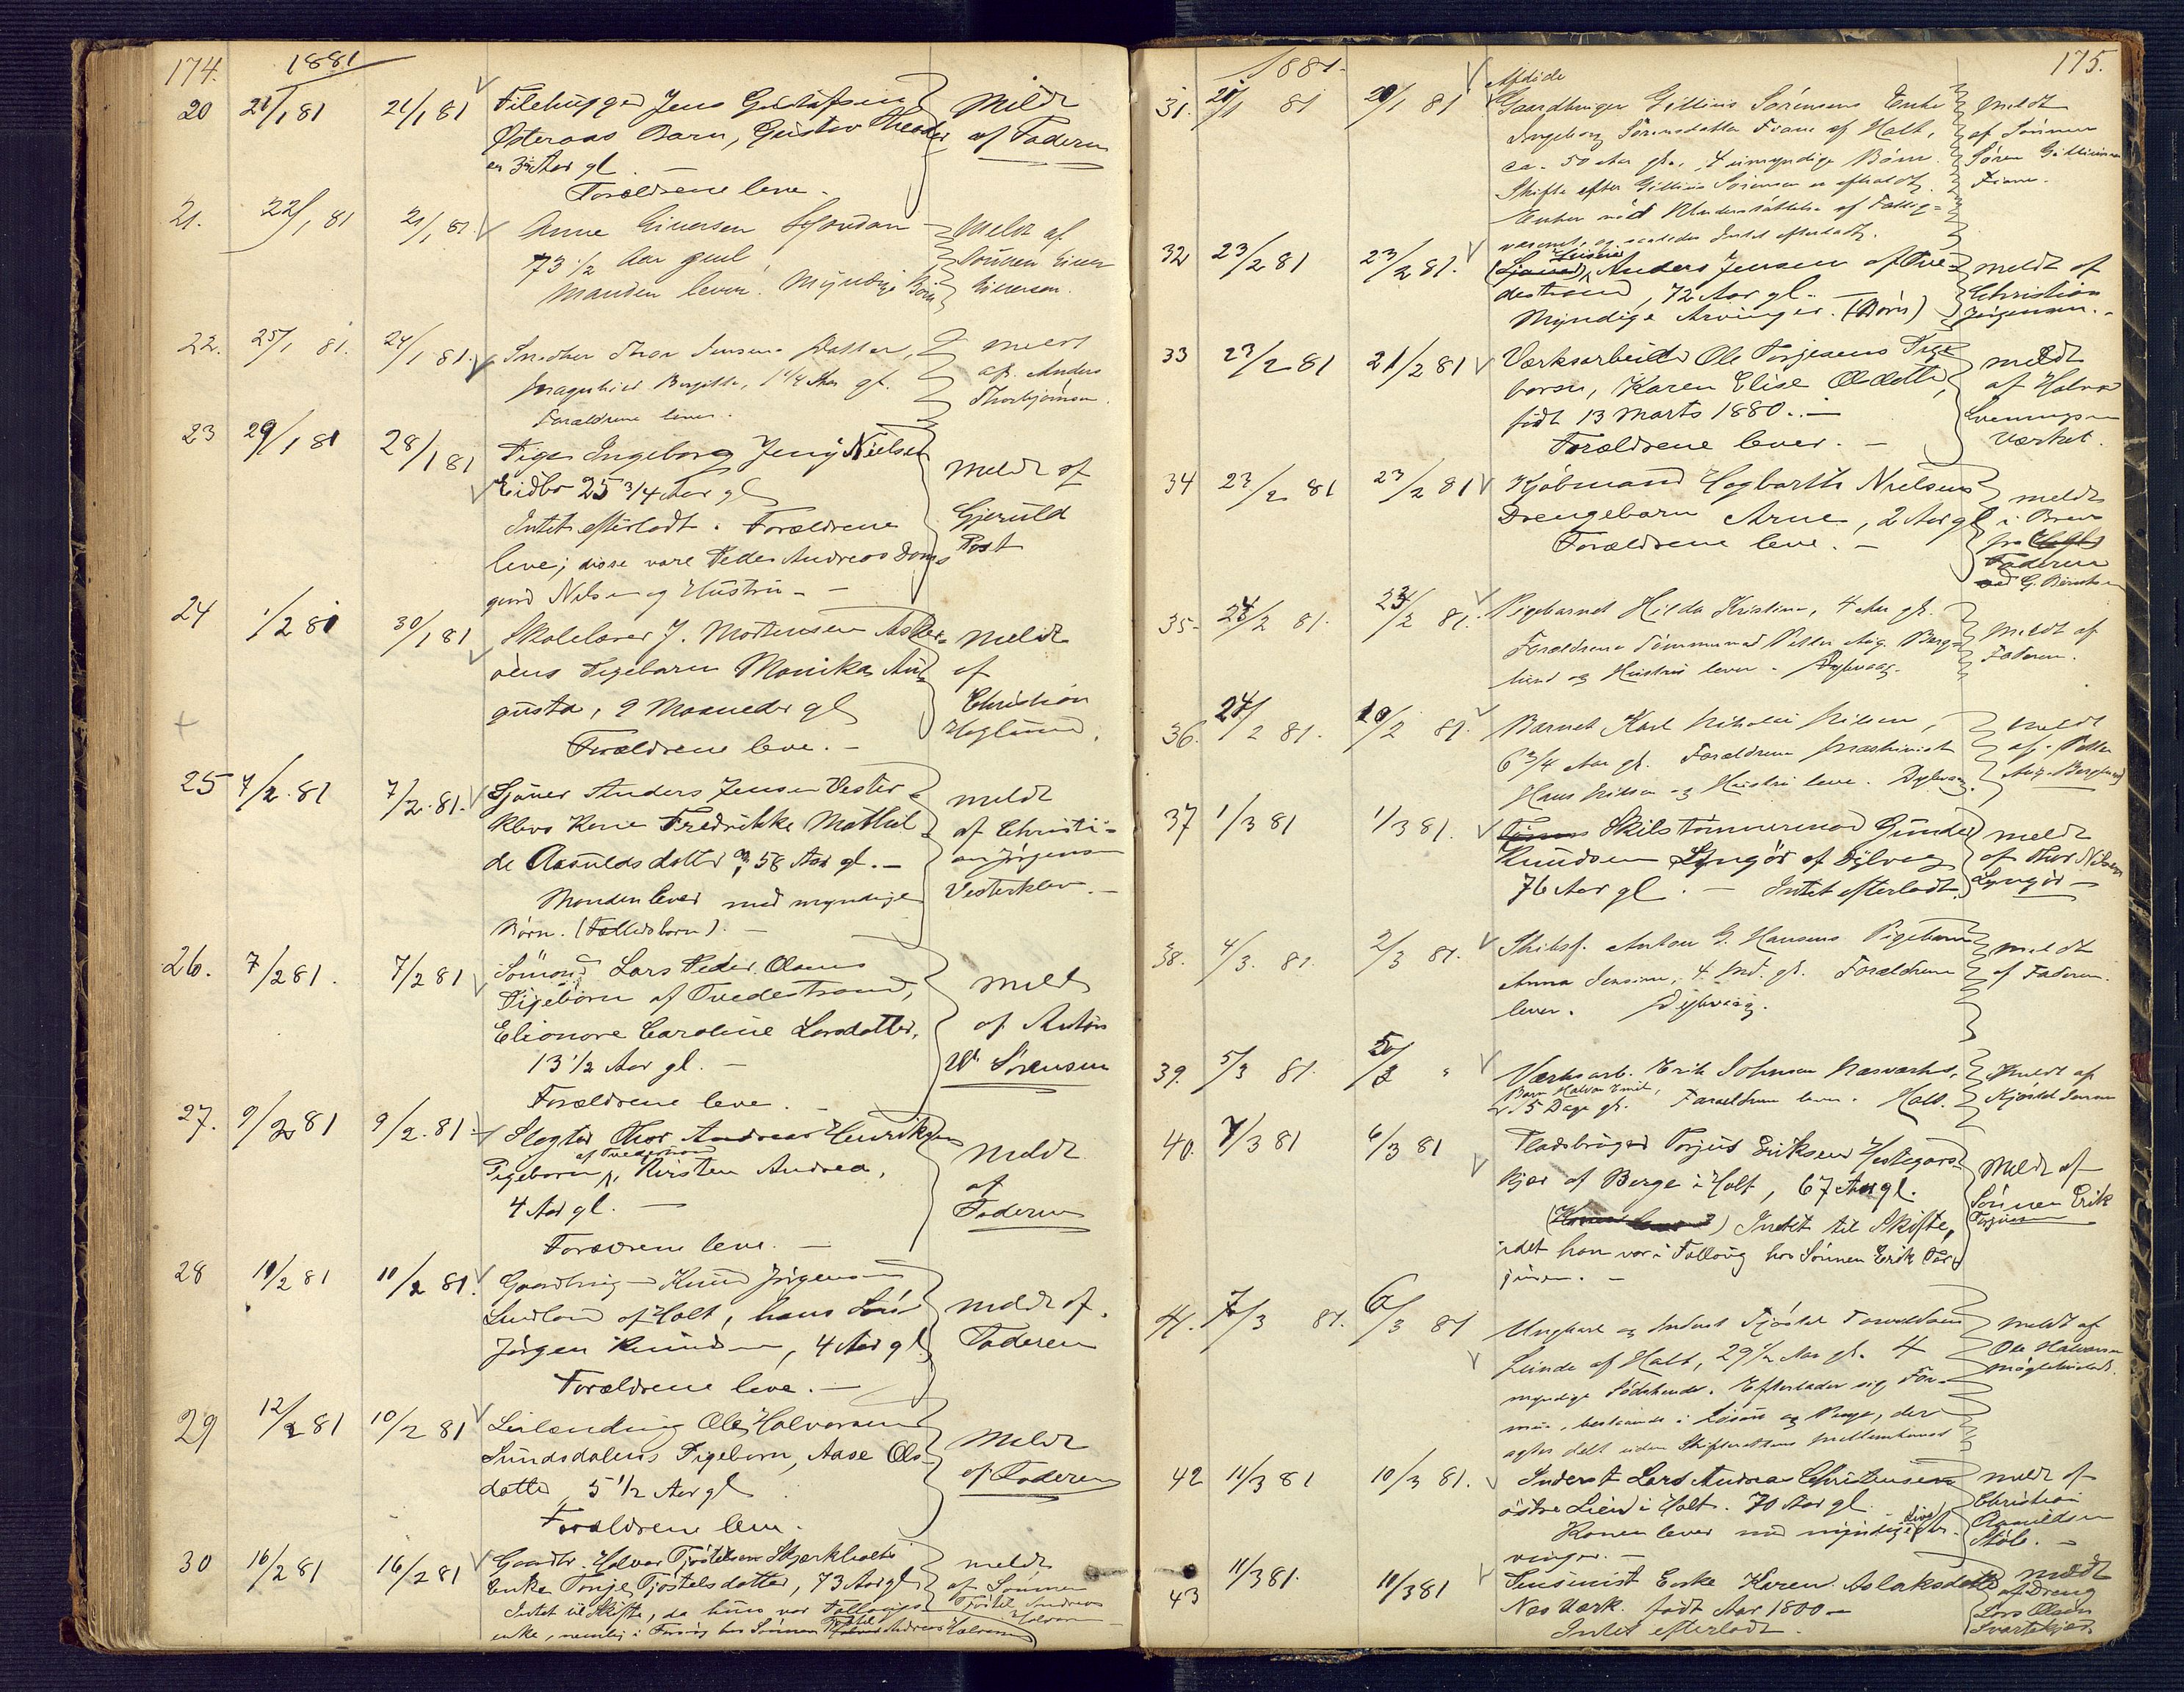 174.
1881
20 21/1 81 21/1 81 Filehugger Jens Gustafsen
Østeraas Barn, Gustav Theodor
er 3½ Aar gl
Forældrene leve.
Meldt
af Faderen
21. 22/1 81 21/1 81 Anne Einersen
73 1/2 Aar gml
Manden lever. Myndige Børn
Meldt af
Sønnen Einer
Einersen.
22. 25/1 81. 24/1 81. Snedker Thor Jensens Datter,
Magnhild Bergitte, 1 1/4 Aar gl.
Forældrene lever.
meldt
af Anders
Thorbjørnsen.
23 29/1 81 28/1 81 Pige Ingeborg Jenny Nielsen
Eidbo 25 3/4 Aar gl
Intet efterladt. Forældrene
leve; disse vare Peder Andreas Dom
gaard Nielsen og Hustru -
Meldt af
Gjeruld
Post
24 1/2 81 30/1 81 Skolelærer J. Mortensen Asker-
øens Pigebarn Monika Au-
gusta, 9 Maaneder gl
Forældrene leve. -
Meldt
af
Christian
Høglund.
25 7/2 81 7/2. 81. Sjømd Anders Jensen Vester-
klevs Kone Fredrikke Mathil-
de Aasuldsdatter, 58 Aar gl. -
Manden lever med myndige
Børn. (Fællesbørn). -
meldt
af Christi-
an Jørgensen
Vesterklev. -
26. 7/2 81. 7/2 81 Sømand Lars Peder Olsens
Pigebarn af Tvedestrand,
Elionore Caroline Larsdatter,
13 1/2 Aar gl. -
Forældrene leve. -
Meldt
af Anton
W. Sørensen
27. 9/2 81 9/2. 81. Slagter Thor Andreas Henriksens
af Tvedestrand
Pigebarn, Kirsten Andrea,
4 Aar gl. -
Forældrene leve. -
Meldt
af
Faderen
28 11/2 81 11/2 81. Gaardbruger Knud Jørgensen
Lindland af Holt, hans Søn
Jørgen Knudsen, 4 Aar gl
Forældrene leve. -
meldt af.
Faderen
29 12/2 81 10/2 81 Leilending Ole Halvorsen
Sundsdalens Pigebarn, Aase Ols-
datter, 5 1/2 Aar gl
Forældrene leve.
Meldt
af Faderen
30 16/2 81 16/2 81 Gaardbr. Halvor Tjøstelsen Skjerkholts
Enke Tonje Tjøstelsdatter, 73 Aar gl
Intet til Skifte, da hun var Føllaugs-
enke, nemlig i Forsørg hos Sønnen Tjøstel Andreas Halvorsen
meldt
af Sønnen
Tjøstel Andreas
Halvorsen
1881.
175.
31. 28/1 81 20/1 81 Afdøde
Gaardbruger Gillius Sørensens Enke
Ingeborg Sørensdatter Fiane af Holt,
ca. 50 Aar gl., 4 umyndige Børn.
Skifte efter Gillius Sørensen er afholdt.
Enken nød Understøttelse af Fattig-
væsenet, og saaledes Intet efterladt.
Meldt
af Sønnen
Søren Gilliussen
Fiane.
32 23/2 81 23/2 81. Anders Jensen af Tve-
destrand, 72 Aar gl. -
Myndige Arvinger. (Børn)
meldt af
Christian
Jørgensen. -
33 23/2 81 21/2 81 Værksarbeider Ole Torjesens Pige
barn, Karen Elise Olsdatter,
født 13 Marts 1880. -
Forældrene lever. -
meldt
af Halvor
Evenungsen
Værket.
34 23/2 81 23/2 81 Kjøbmand Hagbarth Nielsens
Drengebarn Arne, 2 Aar gl
Forældrene leve. -
meldt
i Brev
fra
Faderen
ved G. Berntsen
35. 24/2 81. 23/2 81. Pigebarnet Hilda Kristine, 4 Aar gl.
Forældrene Tømmermand Petter Aug. Berg-
lund og Hustru lever. Dybvaag.
Meldt af
Faderen.
36. 24/2 81. 19/2 81. Barnet Karl Nikolai Nilsen,
6 3/4 Aar gl. Forældrene Maskinist
Hans Nilsen og Hustru leve. Dybvaag.
Meldt
af Petter
Aug. Berglund
37 1/3 81 1/3 81. Skibstømmermand Gunder
Knudsen Lyngør af Dybvag
76 Aar gl. - Intet efterladt.
meldt
af Thor Nilsen
Lyngør -
38. 4/3. 81. 2/3 81. Skibsf. Anton G. Hansens Pigebarn
Anna Jensine, 4 Md. gl. Forældrene
lever. Dybvaag.
meldt
af Faderen.
39. 5/3 81. 5/3 " Værksarb. Erik Johnsen Næsværks,
Barn Halvor Emil,
15 Dage gl. Forældrene lever. Holt.
Meldt af
Kjøstel Jensen
40. 7/3 81 6/3 81 Pladsbruger Torjus Eriksen Hestegars-
kjær af Berge i Holt, 67 Aar gl.
Intet til Skifte,
idet han var i Follaug hos Sønnen Erik Tor-
jusen. -
Meldt af
Sønnen Erik
Torjusen
41. 7/3 81. 6/3 81 Ungkarl og Inderst Tjøstel Torvaldsen
Leinde af Holt, 29 1/2 Aar gl. 4
myndige Sødskende. Efterlader sig For-
mue, bestaaende i Løsøre og Penge, der
agtes delt uden Skifterettens Mellemkomst
meldt af
Ole Halvorsen
Møglehestad.
42 11/3 81 10/3 81. Inderst Lars Andreas Christensen
østre Lien i Holt. 70 Aar gl.
Konen lever med myndige Livsar-
vinger. -
meldt af
Christian
Aanuldsen
Støle. -
43 11/3 81. 10/3 81 Enke Karen Aslaksdatter
Næs Værk. født Aar 1800 -
Intet efterladt.
meldt
af Dreng
Lars Olsen
Svartekjær.